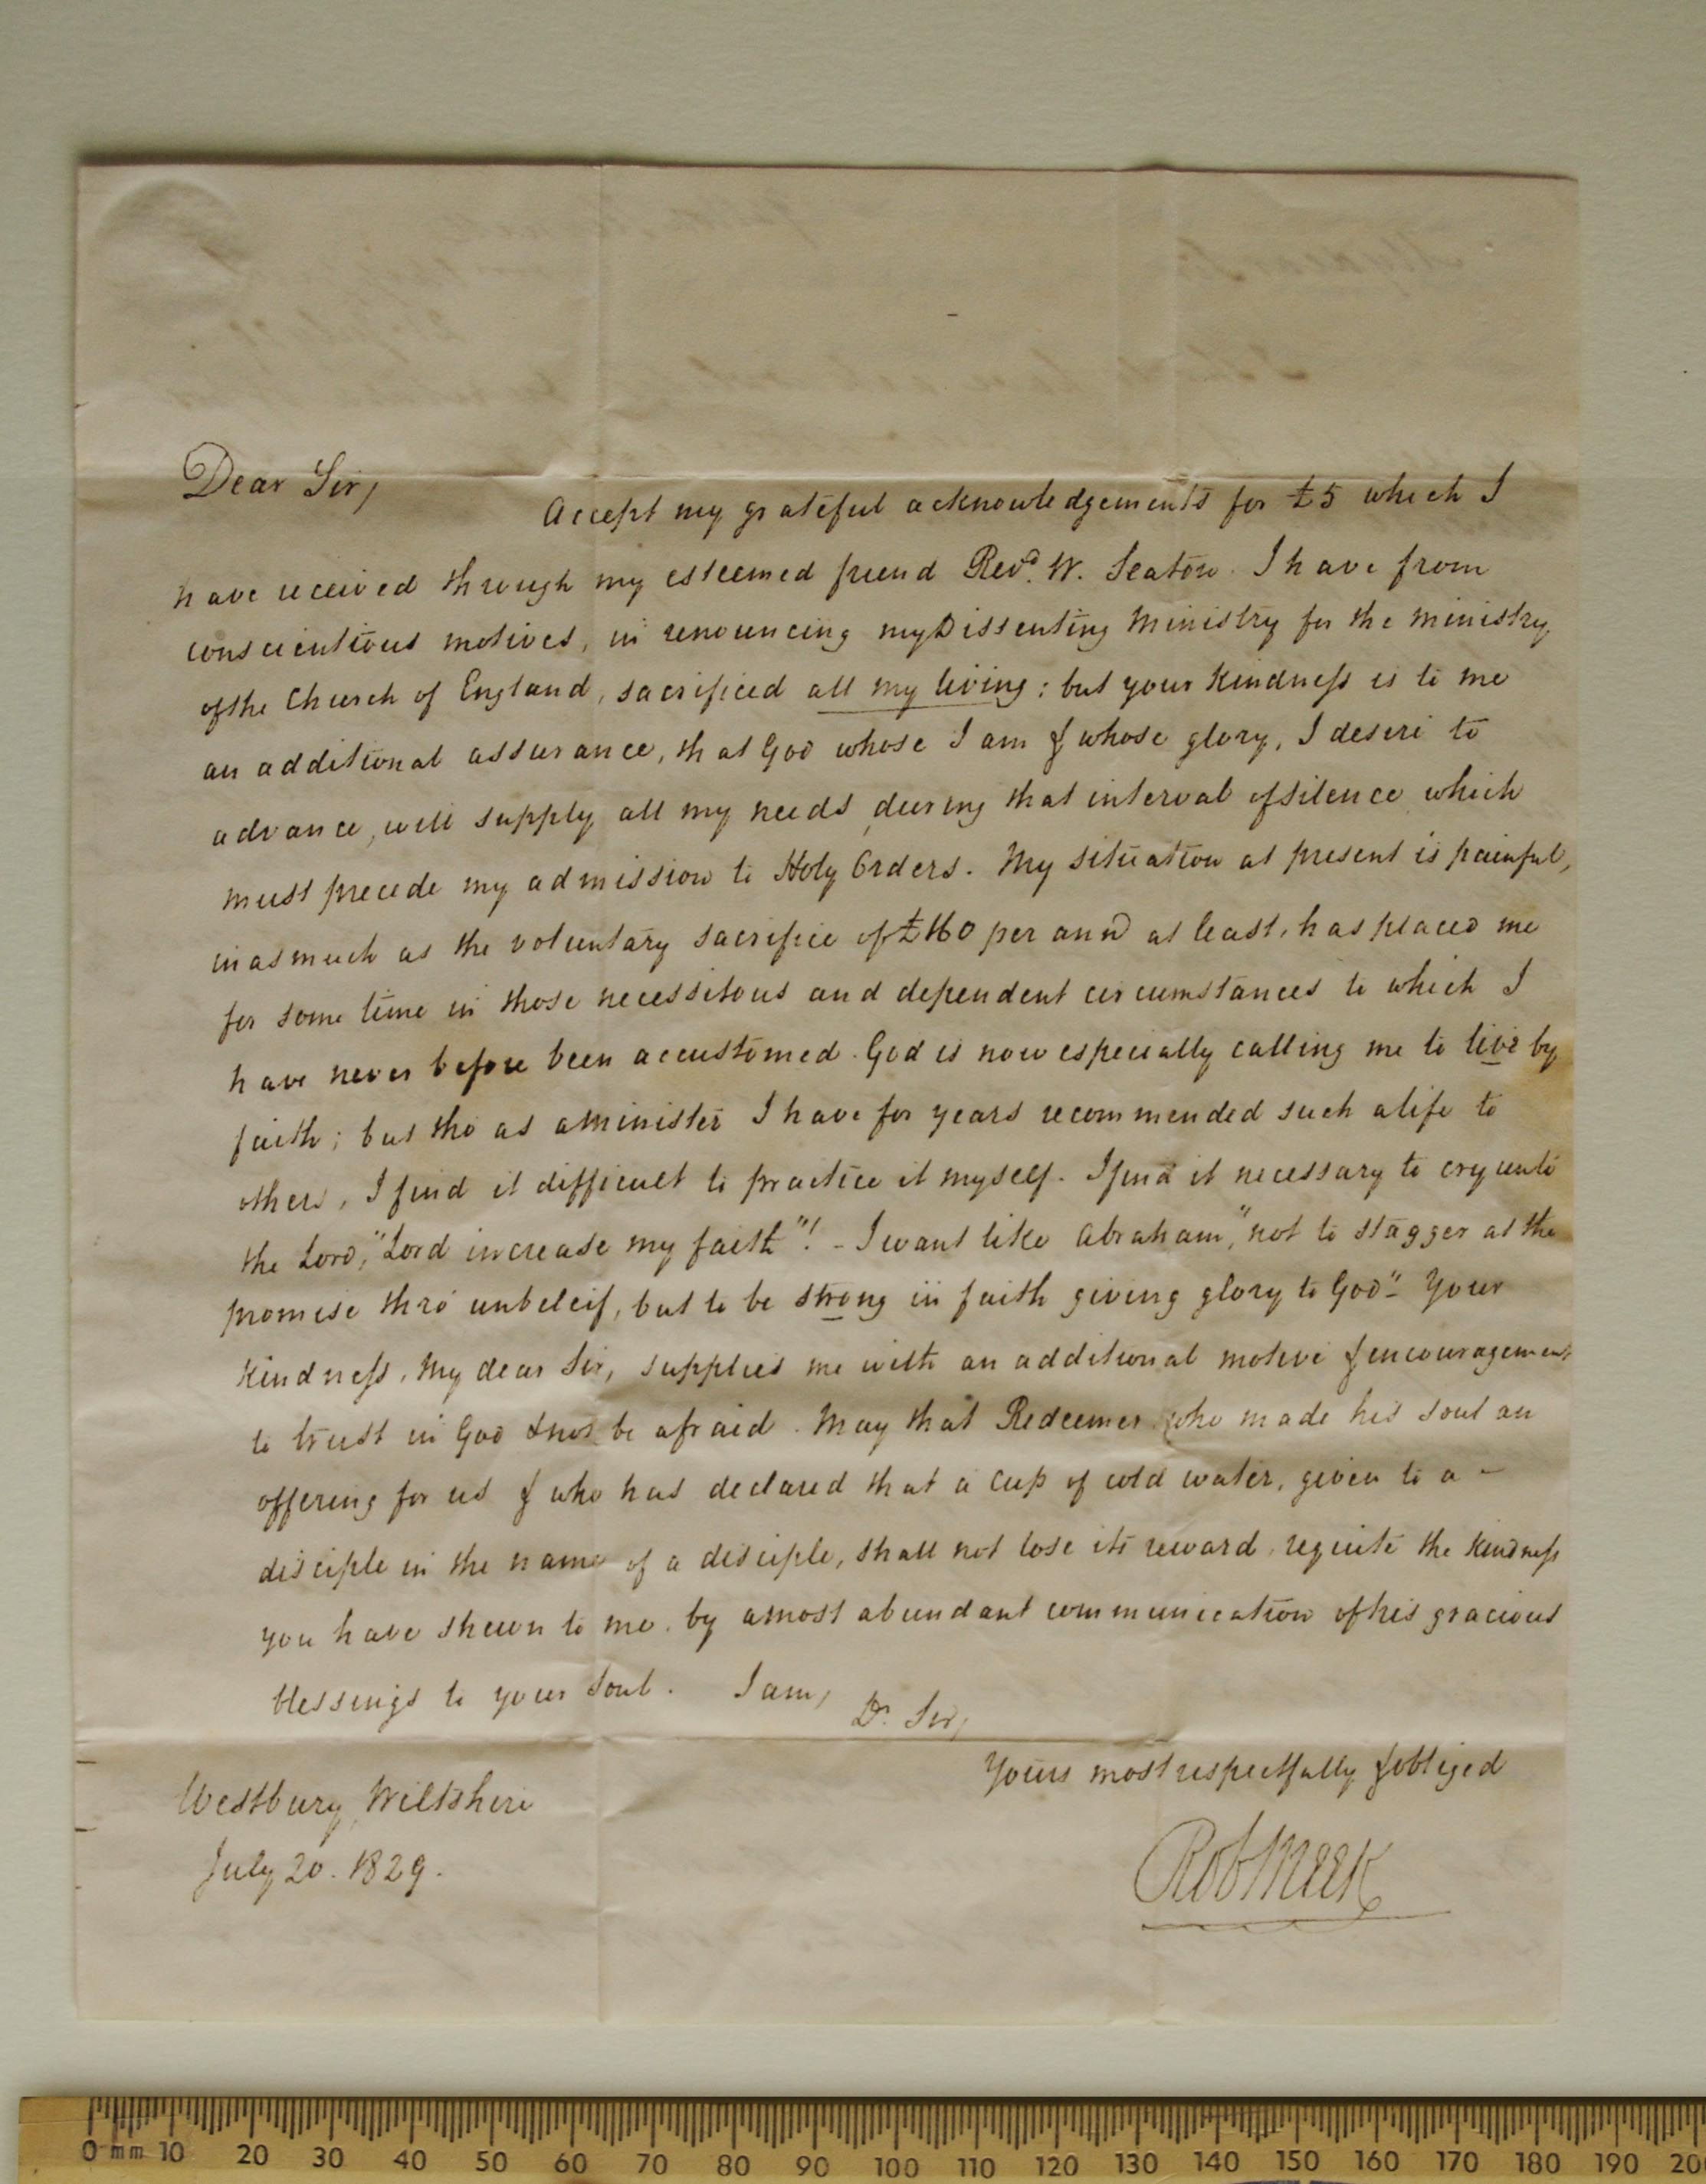 Dear Sir,
Accept my grateful acknowledgements for £5 which I
have received through my esteemed friend Revd. W. Seaton. I have from
conscientious motives, in renouncing my Dissenting Ministry for the ministry
of the Church of England, sacrificed all my living: but your kindness is to me
an additional assurance, that God whose I am & whose glory, I desire to
advance, will supply all my needs during that interval of silence which
must precede my admission to Holy Orders. My situation at present is painful,
in as much as the voluntary sacrifice of £160 per ann at least, has placed me
for some time in those necessitous and dependent circumstances to which I
have never before been accustomed. God is now especially calling me to live by
faith; but tho' as a minister I have for years recommended such a life to
others, I find it difficult to practice it myself. I find it necessary to cry unto
the Lord, "Lord increase my faith"! - I want like Abraham, "not to stagger at the
promise thro' unbeleif, but to be strong in faith giving glory to God" Your
kindness, My dear Sir, supplies me with an additional motive & encouragement
to trust in God & not be afraid. May that Redeemer who made his soul an
offering for us & who has declared that a cup of cold water, given to a -
disciple in the name of a disciple, shall not lose its reward, requite the kindness
you have shewn to me, by a most abundant communication of his gracious
blessings to your soul. I am,
Dr. Sir,
Yours most respectfully & obliged
Westbury, Wiltshire
July 20. 1829.
Rob Meek
0 mm 10 20 30 40 50 60 70 80 90 100 110 120 130 140 150 160 170 180 190 20